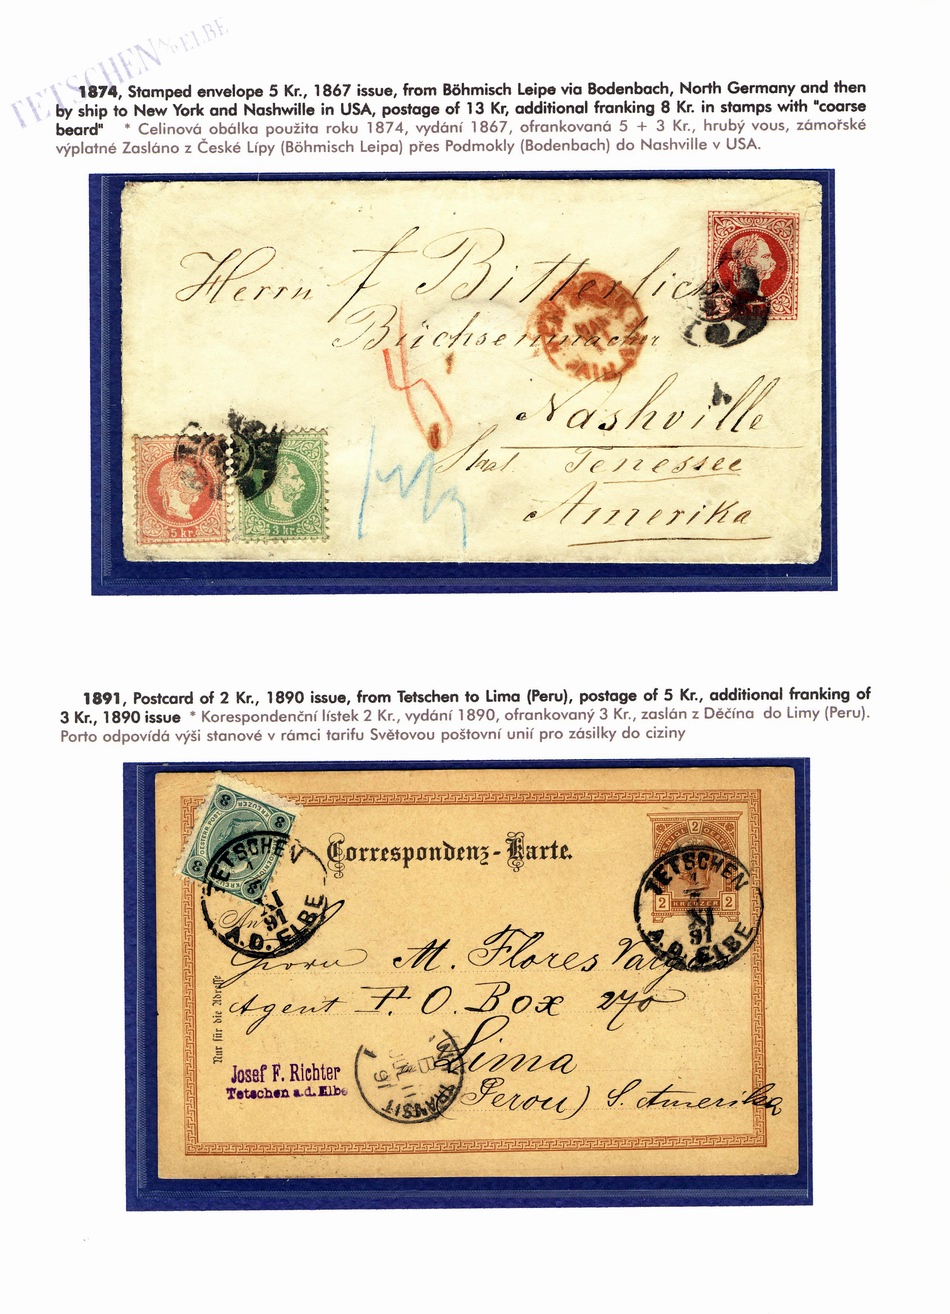 TETSCHEN A/D ELBE
1874, Stamped envelope 5 Kr., 1867 issue, from Böhmisch Leipe via Bodenbach, North Germany and then
by ship to New York and Nashwille in USA, postage of 13 Kr, additional franking 8 Kr. in stamps with "coarse
beard" * Celinová obálka použita roku 1874, vydání 1867, ofrankovaná 5 + 3 Kr., hrubý vous, zámořské
výplatné Zasláno z České Lípy (Böhmisch Leipa) přes Podmokly (Bodenbach) do Nashville v USA.
Herrn F Bitterlich
Büchsenmacher
Nashville
Staat Tenessee
Amerika
5 kr.
3 kr.
1891, Postcard of 2 Kr., 1890 issue, from Tetschen to Lima (Peru), postage of 5 Kr., additional franking of
3 Kr., 1890 issue * Korespondenční lístek 2 Kr., vydání 1890, ofrankovaný 3 Kr., zaslán z Děčína do Limy (Peru).
Porto odpovídá výši stanové v rámci tarifu Světovou poštovní unií pro zásilky do ciziny
Correspondenz-Karte.
3 3 3 3
KREUZER
TETSCHEN
XI
91
A.D. ELBE
2
2 2
KREUZER
TETSCHEN
XI
91
A.D. ELBE
An
Herrn M. Flores
Agent P. O. Box 270
Lima
(Perou) S. Amerika
Nur für die Adresse
Josef F. Richter
Tetschen a.d. Elbe
TRANSIT
91